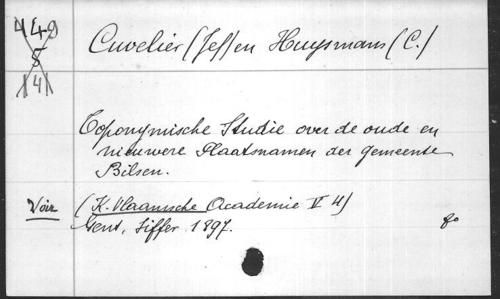 449
5
4
Cuvelier (Jef) en Huysmans (C.)
Toponymische Studie over de oude en
nieuwere Plaatsnamen der gemeente
Bilsen.
Voir (K. Vlaamsche Academie V 4)
Gent, Siffer 1897.
8o